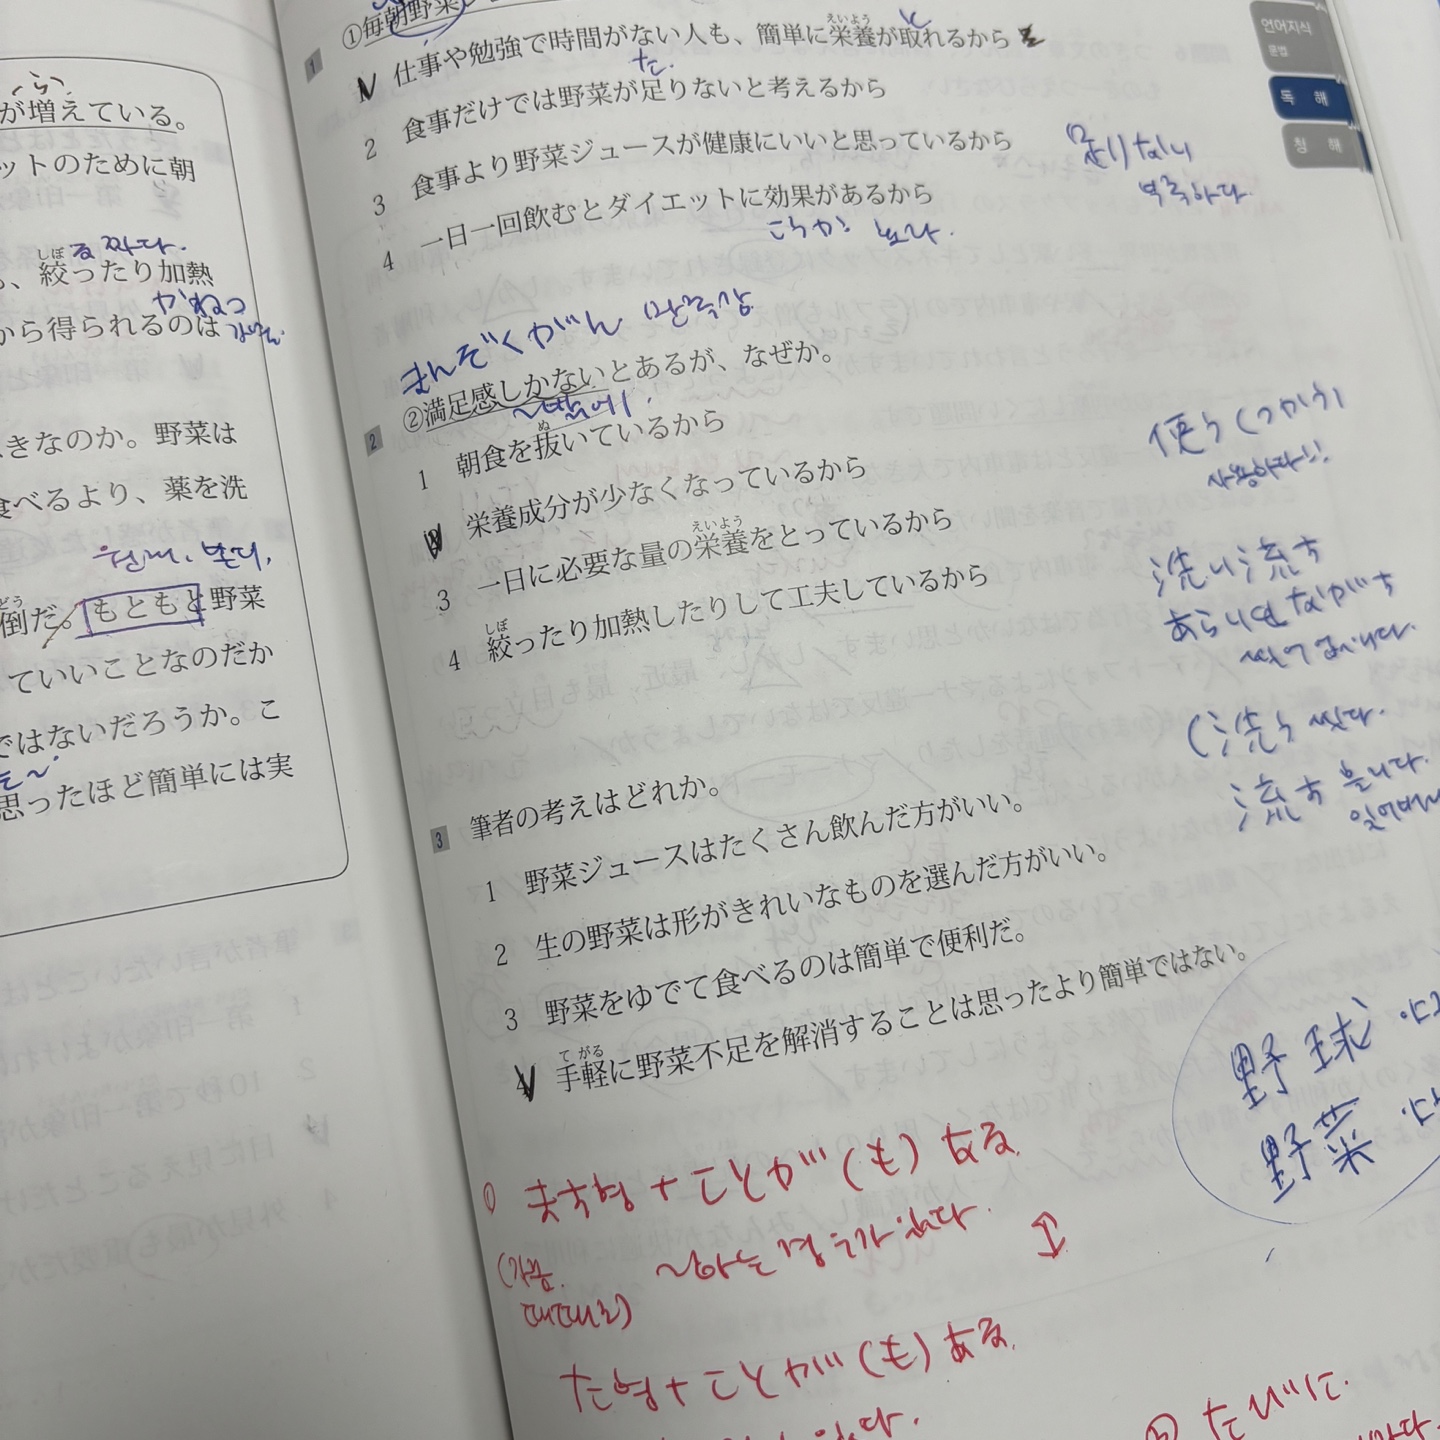 が増えている。
ットのために朝
る 짜다.
しぼ
、絞ったり加熱
かねつ
から得られるのは
きなのか。野菜は
食べるより、薬を洗
원래, 본디,
どう
倒だ。もともと野菜
ていいことなのだか
ではないだろうか。こ
思ったほど簡単には実
①毎朝野菜
1
えいよう
と
1 仕事や勉強で時間がない人も、簡単に栄養が取れるから
た.
2 食事だけでは野菜が足りないと考えるから
3 食事より野菜ジュースが健康にいいと思っているから
4 一日一回飲むとダイエットに効果があるから
こうか 효과.
足りない
부족하다.
まんぞくがん 만족감
2 ②満足感しかないとあるが、なぜか。
~밖에!
ぬ
1 朝食を抜いているから
2 栄養成分が少なくなっているから
えいよう
3 一日に必要な量の栄養をとっているから
しぼ
4 絞ったり加熱したりして工夫しているから
使う(つかう)
사용하다!!
洗い流す
あらいながす
(洗う 씻다.
流す
3 筆者の考えはどれか。
1 野菜ジュースはたくさん飲んだ方がいい。
2 生の野菜は形がきれいなものを選んだ方がいい。
3 野菜をゆでて食べるのは簡単で便利だ。
てがる
4 手軽に野菜不足を解消することは思ったより簡単ではない。
野球
野菜
① ます형 + ことが(も)ある
(가끔, 때때로) ~하는 경우가 있다.
↕
た형 + ことが(も)ある
たびに.
언어지식
문법
독 해
청 해